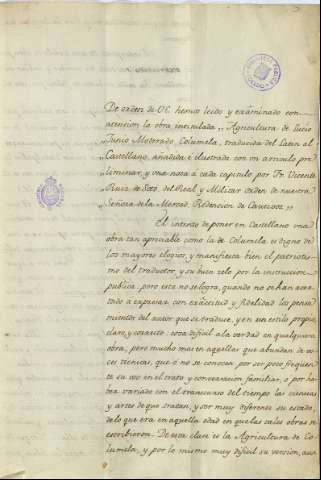 De orden de V.E. hemos leido y examinado con
atencion la obra intitulada "Agricultura de Lucio
Junio Moderado Columela, traducida del Latin al
Castellano, añadida é ilustrada con un articulo pre-
liminar, y una nota á cada capitulo por Fr. Vicente
del Real y Militar orden de nuestra
Señora de la Merced Redencion de Cautivos"
El intento de poner en Castellano una
obra tan apreciable como la de Columela, es digno de
los mayores elogios, y manifiesta bien el patriotis-
mo del traductor, y su buen zelo por la instruccion
publica, pero esto no se logra, quando no se han acer-
tado á expresar con exâctitud y fidelidad los pensa-
mientos del autor que se traduce, y en un estilo propio,
claro, y correcto: cosa dificil á la verdad en qualquiera
obra, pero mucho mas en aquellas que abundan de vo-
ces técnicas, que ó no se conocen por ser poco frequen-
te su uso en el trato y conversacion familiar, ó por ha-
ber variado con el transcurso del tiempo las ciencias
y artes de que tratan, y ser muy diferente su estado,
del que era en aquella edad en que las tales obras se
escribieron. De esta clase es la Agricultura de Co-
lumela, y por lo mismo muy dificil su version, aun